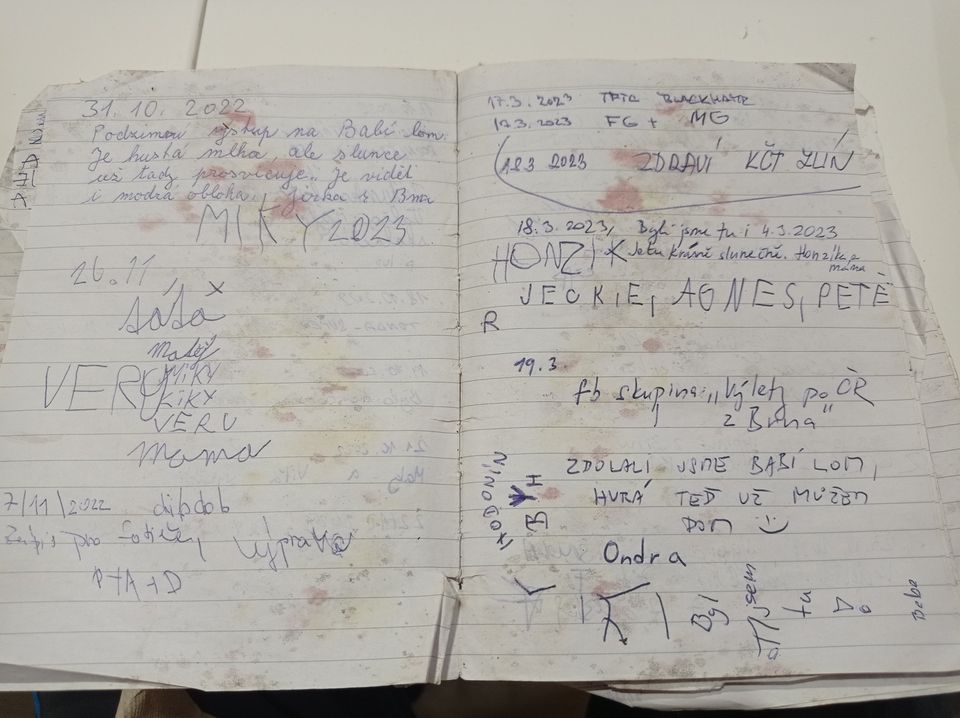 31.10.2022
Podzimní výstup na Babí lom.
Je hustá mlha, ale slunce
už tady prosvicuje. Je vidět
i modrá obloha. Jirka z Brna
MIKY 2023
26.11.
táta
Matěj
MIKY
VERU
KIKY
VERU
mama
7/11/2022 dibdob
pro výprava
P+A+D
17.3.2023
17.3.2023 FG + MG
18.3 2023 ZDRAVÍ KČT ZLÍN
18.3.2023, Byli jsme tu i 4.3.2023
HONZÍK Je tu krásně slunečně. Honzík a
máma
JECKIE, AGNES, PETĚ
R
19.3.
fb skupina: „Výlety po ČR
z Brna"
ZDOLALI JSME BABÍ LOM,
HURÁ TEĎ UŽ MŮŽEM
DOM
HODONÍN
BYH
Ondra
Byl
jsem
tu